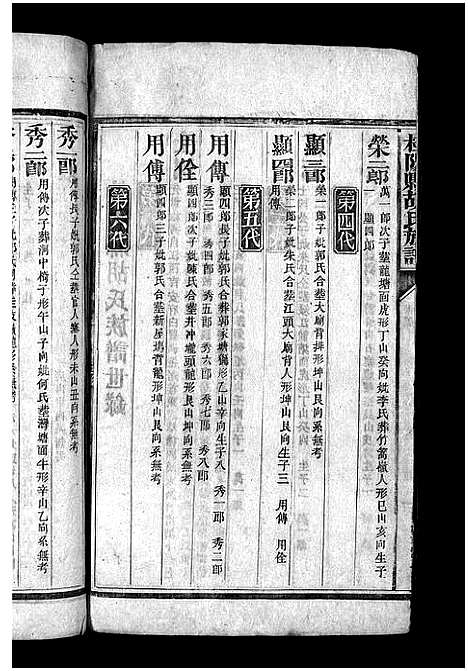 胡氏族譜
榮二郎
萬一郎次子葬龍塘面虎形丁山癸向妣李氏葬竹篙嶺人形巳山亥向生子一
顯四郎
第四代
顯三郎
榮一郎子妣郭氏合葬大廟背排形坤山艮向生子一
顯四郎
榮二郎子妣朱氏合葬江頭大廟背人形坤山艮向生子三 用傳 用佺
第五代
用傳
顯四郎長子妣郭氏合葬郭家塘鵝形乙山辛向生子八 秀一郎 秀二郎
秀三郎 秀四郎 秀五郎 秀六郎 秀七郎 秀八郎
用佺
顯四郎次子妣陳氏合葬井冲壠頭龍形艮山坤向系無考
用傅
顯四郎三子妣郭氏合葬新屋塲背龍形坤山艮向系無考
第六代
胡氏族譜世錄
秀一郎
用傳長子妣郭氏仝葬官人簝人形未山丑向系無考
秀二郎
用傳次子葬洞中椅丁形午山子向妣何氏葬灣塘面牛形辛山乙向系無考